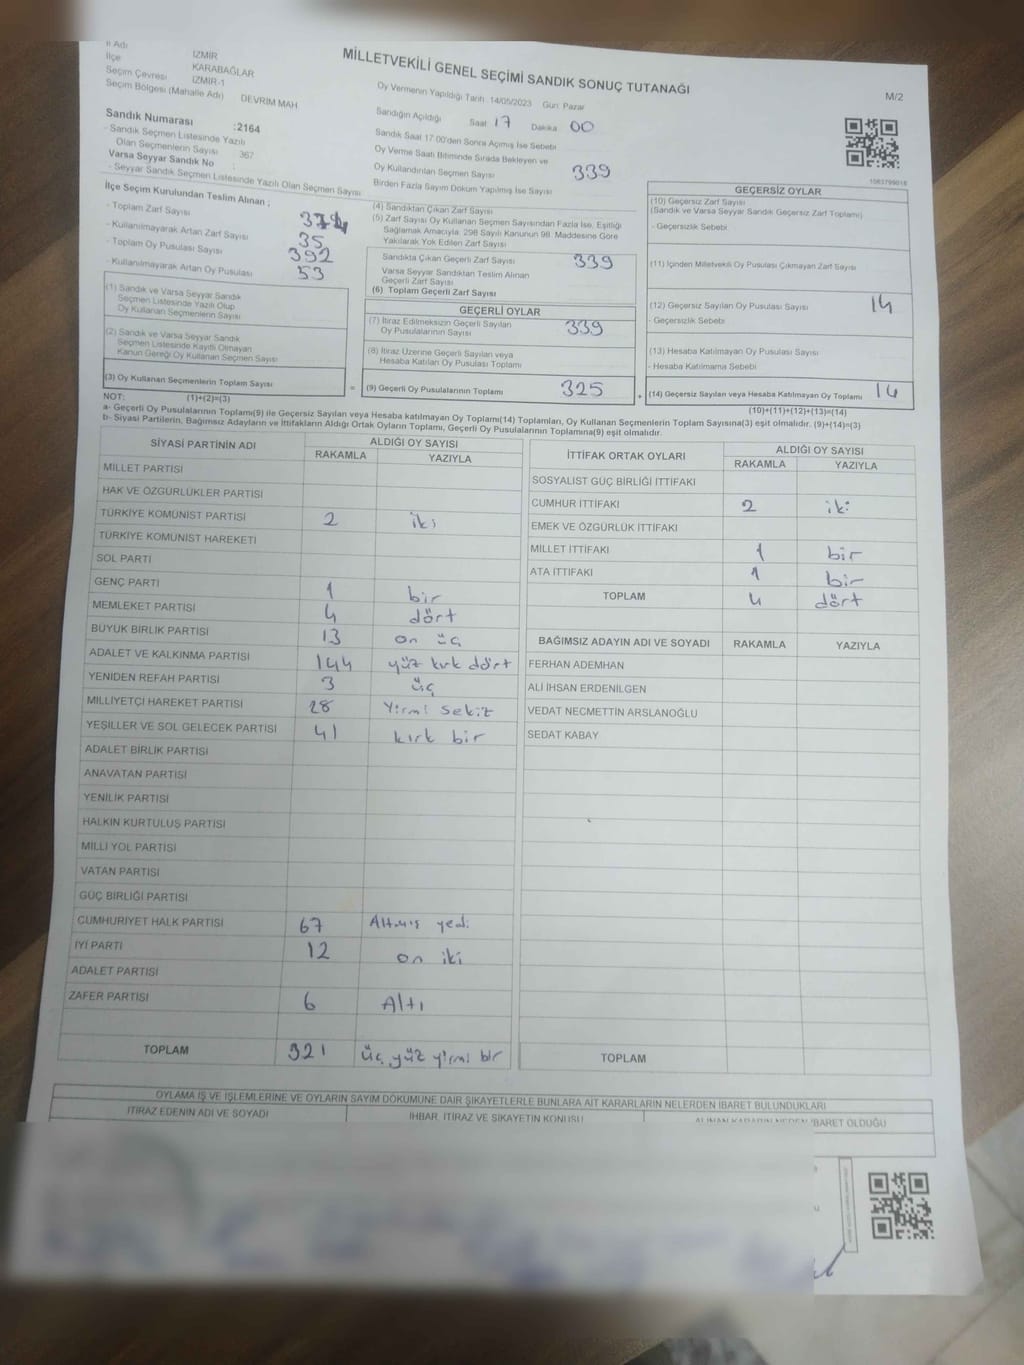 İl Adı İZMİR
İlçe KARABAĞLAR
Seçim Çevresi İZMİR-1
Seçim Bölgesi (Mahalle Adı) DEVRİM MAH
Sandık Numarası :2164
- Sandık Seçmen Listesinde Yazılı
Olan Seçmenlerin Sayısı : 367
Varsa Seyyar Sandık No
- Seyyar Sandık Seçmen Listesinde Yazılı Olan Seçmen Sayısı
MİLLETVEKİLİ GENEL SEÇİMİ SANDIK SONUÇ TUTANAĞI
M/2
Oy Vermenin Yapıldığı Tarih 14/05/2023 Gün Pazar
Sandığın Açıldığı Saat 17 Dakika 00
Sandık Saat 17.00'den Sonra Açılmış İse Sebebi
Oy Verme Saati Bitiminde Sırada Bekleyen ve
Oy Kullandırılan Seçmen Sayısı 339
Birden Fazla Sayım Döküm Yapılmış İse Sayısı
İlçe Seçim Kurulundan Teslim Alınan ;
- Toplam Zarf Sayısı
- Kullanılmayarak Artan Zarf Sayısı 35
- Toplam Oy Pusulası Sayısı 392
- Kullanılmayarak Artan Oy Pusulası 53
(1) Sandık ve Varsa Seyyar Sandık
Seçmen Listesinde Yazılı Olup
Oy Kullanan Seçmenlerin Sayısı
(2) Sandık ve Varsa Seyyar Sandık
Seçmen Listesinde Kayıtlı Olmayan
Kanun Gereği Oy Kullanan Seçmen Sayısı
(3) Oy Kullanan Seçmenlerin Toplam Sayısı
(4) Sandıktan Çıkan Zarf Sayısı
(5) Zarf Sayısı Oy Kullanan Seçmen Sayısından Fazla İse, Eşitliği
Sağlamak Amacıyla; 298 Sayılı Kanunun 98. Maddesine Göre
Yakılarak Yok Edilen Zarf Sayısı
Sandıkta Çıkan Geçerli Zarf Sayısı 339
Varsa Seyyar Sandıktan Teslim Alınan
Geçerli Zarf Sayısı
(6) Toplam Geçerli Zarf Sayısı
GEÇERLİ OYLAR
(7) İtiraz Edilmeksizin Geçerli Sayılan
Oy Pusulalarının Sayısı 339
(8) İtiraz Üzerine Geçerli Sayılan veya
Hesaba Katılan Oy Pusulası Toplamı
= (9) Geçerli Oy Pusulalarının Toplamı 325
1083799016
GEÇERSİZ OYLAR
(10) Geçersiz Zarf Sayısı
(Sandık ve Varsa Seyyar Sandık Geçersiz Zarf Toplamı)
- Geçersizlik Sebebi
(11) İçinden Milletvekili Oy Pusulası Çıkmayan Zarf Sayısı
(12) Geçersiz Sayılan Oy Pusulası Sayısı 14
- Geçersizlik Sebebi
(13) Hesaba Katılmayan Oy Pusulası Sayısı
- Hesaba Katılmama Sebebi
+ (14) Geçersiz Sayılan veya Hesaba Katılmayan Oy Toplamı 14
NOT: (1)+(2)=(3) (10)+(11)+(12)+(13)=(14)
a- Geçerli Oy Pusulalarının Toplamı(9) ile Geçersiz Sayılan veya Hesaba katılmayan Oy Toplamı(14) Toplamları, Oy Kullanan Seçmenlerin Toplam Sayısına(3) eşit olmalıdır. (9)+(14)=(3)
b- Siyasi Partilerin, Bağımsız Adayların ve İttifakların Aldığı Ortak Oyların Toplamı, Geçerli Oy Pusulalarının Toplamına(9) eşit olmalıdır.
SİYASİ PARTİNİN ADI ALDIĞI OY SAYISI
RAKAMLA YAZIYLA
MİLLET PARTİSİ
HAK VE ÖZGÜRLÜKLER PARTİSİ
TÜRKİYE KOMÜNİST PARTİSİ 2 iki
TÜRKİYE KOMÜNİST HAREKETİ
SOL PARTİ
GENÇ PARTİ 1 bir
MEMLEKET PARTİSİ 4 dört
BÜYÜK BİRLİK PARTİSİ 13 on üç
ADALET VE KALKINMA PARTİSİ 144 yüz kırk dört
YENİDEN REFAH PARTİSİ 3 üç
MİLLİYETÇİ HAREKET PARTİSİ 28 Yirmi sekiz
YEŞİLLER VE SOL GELECEK PARTİSİ 41 kırk bir
ADALET BİRLİK PARTİSİ
ANAVATAN PARTİSİ
YENİLİK PARTİSİ
HALKIN KURTULUŞ PARTİSİ
MİLLİ YOL PARTİSİ
VATAN PARTİSİ
GÜÇ BİRLİĞİ PARTİSİ
CUMHURİYET HALK PARTİSİ 67 Altmış yedi
İYİ PARTİ 12 on iki
ADALET PARTİSİ
ZAFER PARTİSİ 6 Altı
TOPLAM 321 üç yüz yirmi bir
İTTİFAK ORTAK OYLARI ALDIĞI OY SAYISI
RAKAMLA YAZIYLA
SOSYALİST GÜÇ BİRLİĞİ İTTİFAKI
CUMHUR İTTİFAKI 2 iki
EMEK VE ÖZGÜRLÜK İTTİFAKI
MİLLET İTTİFAKI 1 bir
ATA İTTİFAKI 1 bir
TOPLAM 4 dört
BAĞIMSIZ ADAYIN ADI VE SOYADI RAKAMLA YAZIYLA
FERHAN ADEMHAN
ALİ İHSAN ERDENİLGEN
VEDAT NECMETTİN ARSLANOĞLU
SEDAT KABAY
TOPLAM
OYLAMA İŞ VE İŞLEMLERİNE VE OYLARIN SAYIM DÖKÜMÜNE DAİR ŞİKAYETLERLE BUNLARA AİT KARARLARIN NELERDEN İBARET BULUNDUKLARI
İTİRAZ EDENİN ADI VE SOYADI İHBAR, İTİRAZ VE ŞİKAYETİN KONUSU ALINAN KARARIN NEDEN İBARET OLDUĞU